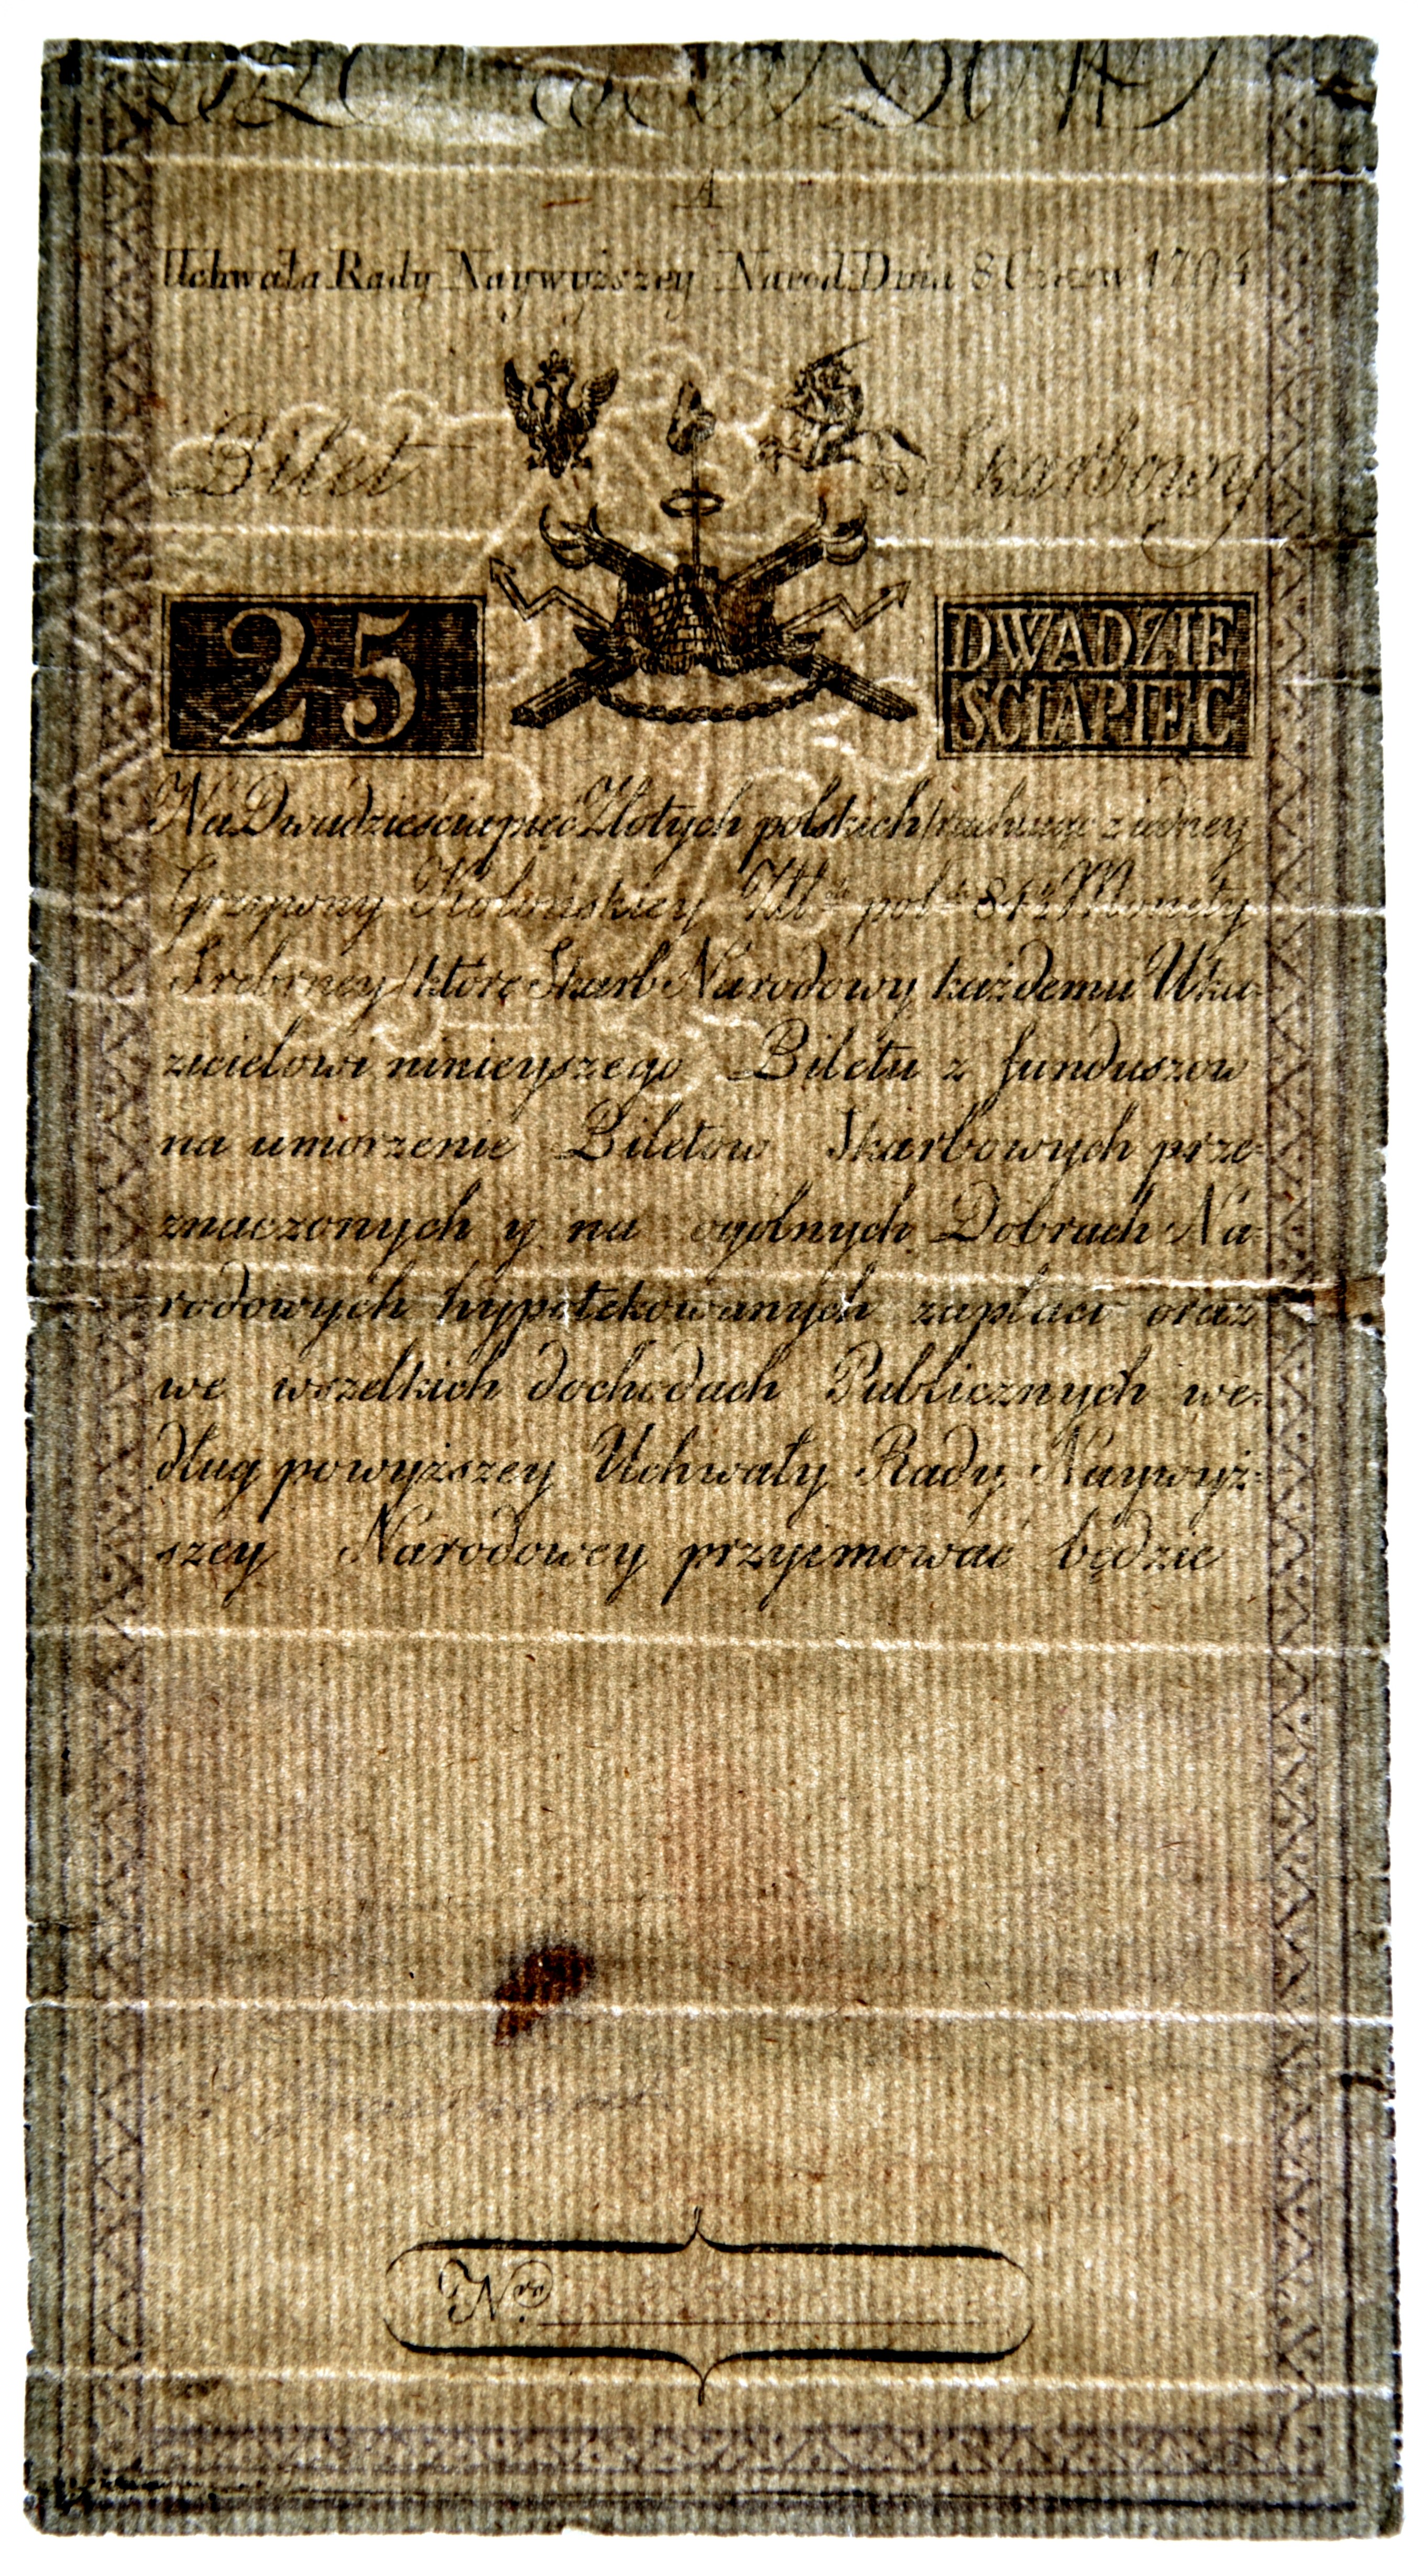 A
Uchwała Rady Naywyższey Narod: Dnia 8 Czerw 1794
Bilet Skarbowy
25
DWADZIE
ŚCIAPIĘC
Na Dwadzieściapięć Złotych polskich/rachuiąc z iedney
Grzywny Kolońskiey Złł: pol: 84½ Monety
Srebrney/ które Skarb Narodowy każdemu Uka-
zicielowi ninieyszego Biletu z funduszow
na umorzenie Biletow Skarbowych prze-
znaczonych y na ogolnych Dobrach Na-
rodowych hypotekowanych zapłaci oraz
we wszelkich dochodach Publicznych we-
dług powyższey Uchwały Rady Naywyż-
szey Narodowey przyimować będzie
Nro